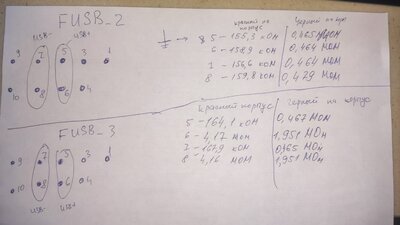 FUSB_2
USB- USB+
9 7 5 3 1
10 8 6 4
красный на корпус
5 - 155,3 кОм
6 - 158,9 кОм
7 - 156,6 кОм
8 - 159,8 кОм
черный на корпус
0,465 МОм
0,464 МОм
0,464 МОм
0,479 МОм
FUSB_3
9 7 5 3 1
10 8 6 4
USB- USB+
Красный корпус
5 - 164,1 кОм
6 - 4,17 Мом
7 - 167,9 кОм
8 - 4,16 МОМ
Черный на корпус
0,467 МОм
1,951 МОм
0,465 МОм
1,951 МОм